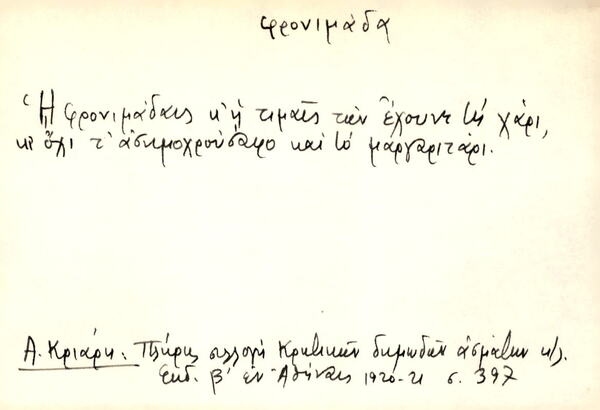 φρονιμάδα
Ἡ φρονιμάδαις κ' ἡ τιμαῖς τῶν ἔχουνε τὴ χάρι,
κι ὄχι τ' ἀσημοχρούσαφο καὶ τὸ μαργαριτάρι.
Α. Κριάρη: Πλήρης συλλογὴ Κρητικῶν δημωδῶν ἀσμάτων κ/λ.
Ἐκδ. β' ἐν Ἀθήναις 1920-21 σ. 397